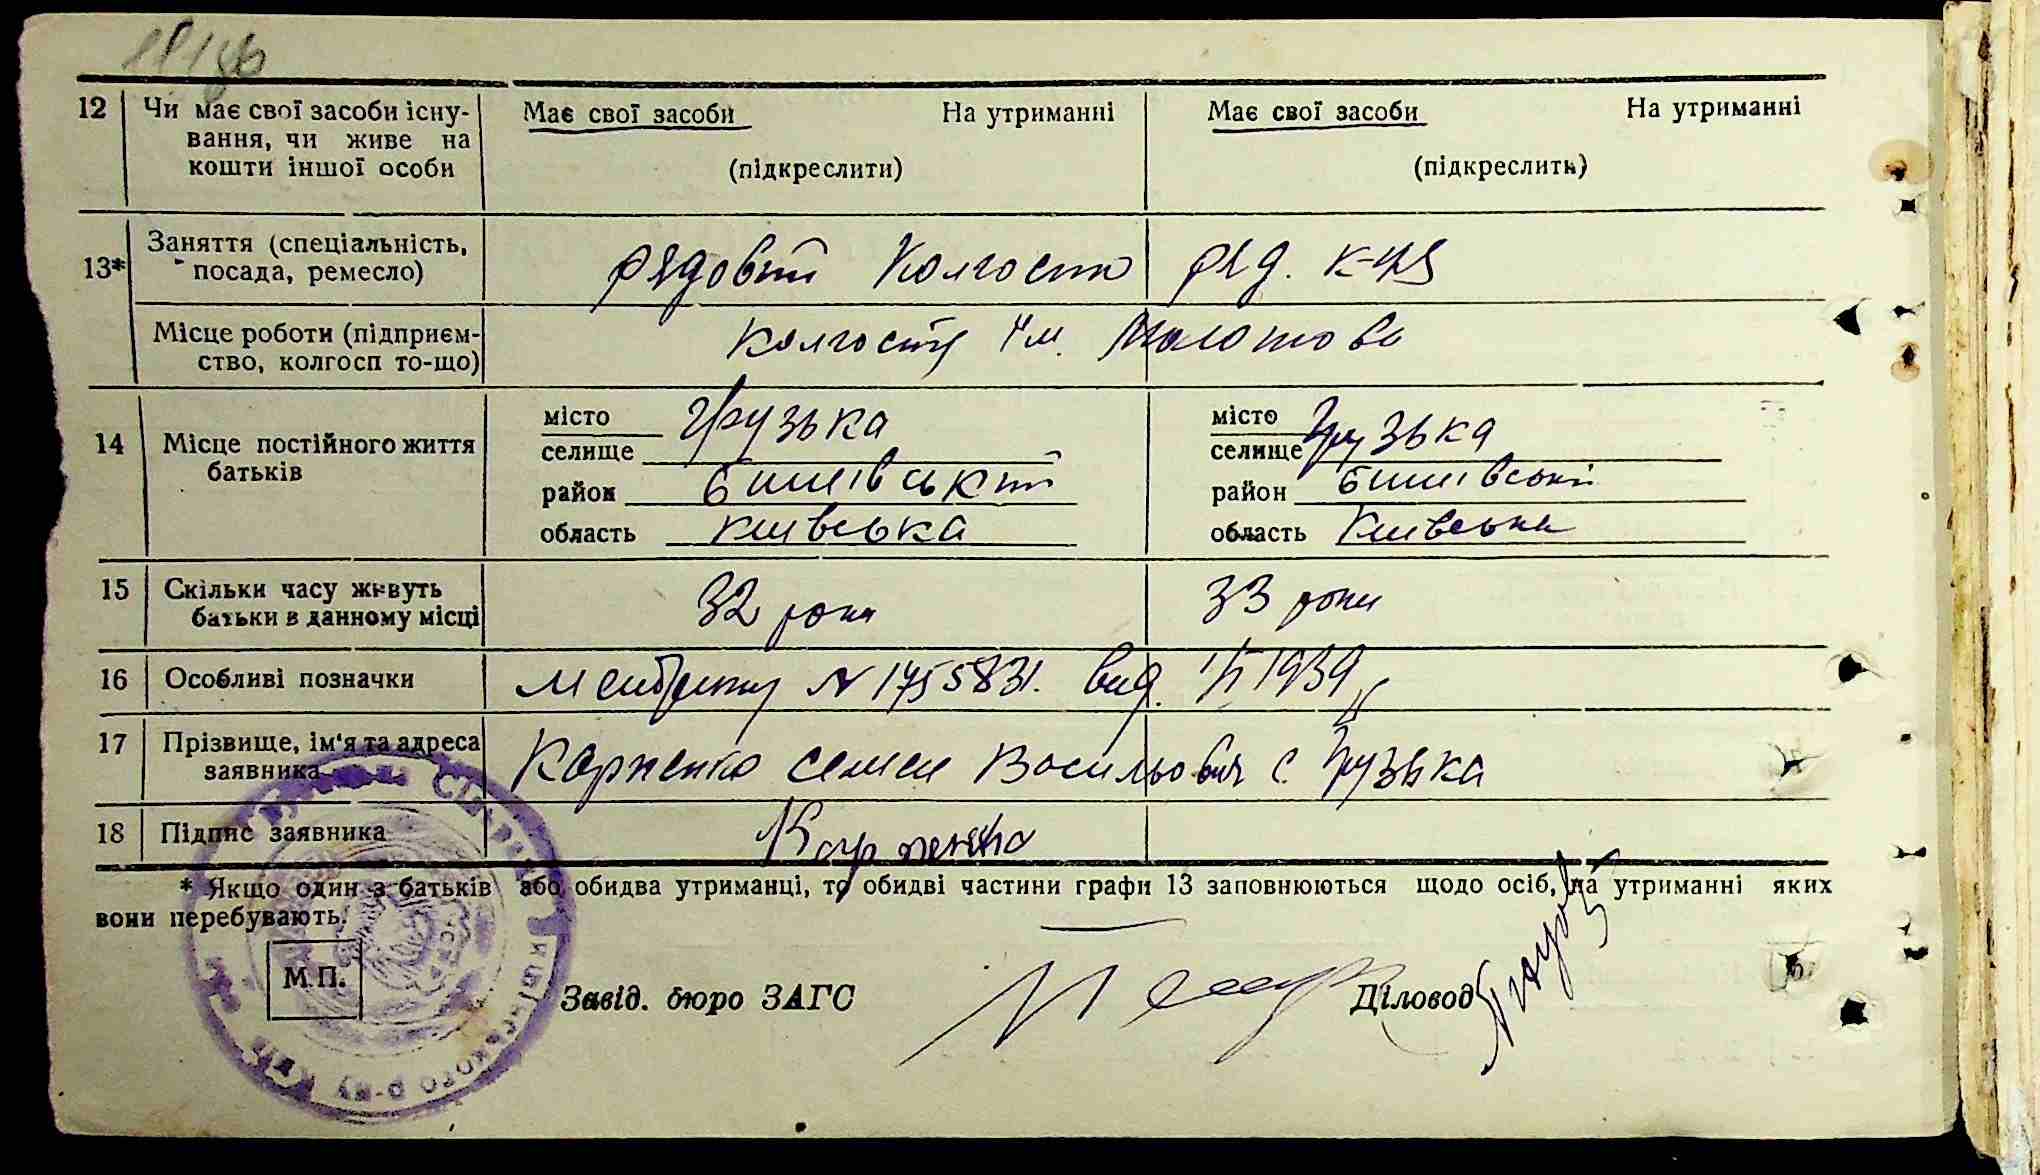 12 Чи має свої засоби існу-
вання, чи живе на
кошти іншої особи
Має свої засоби На утриманні
(підкреслити)
Має свої засоби На утриманні
(підкреслить)
13* Заняття (спеціальність,
посада, ремесло)
рядовий колгоспу
ряд. к-пу
Місце роботи (підприєм-
ство, колгосп то-що)
колгоспу ім. Молотова
14 Місце постійного життя
батьків
місто
селище Грузька
район Бишівський
область Київська
місто
селище Грузька
район Бишівський
область Київська
15 Скільки часу живуть
батьки в данному місці
32 роки
33 роки
16 Особливі позначки
N 1755831. вид. 1939
17 Прізвище, ім'я та адреса
заявника
Карпенко Семен Васильович с. Грузька
18 Підпис заявника
Карпенко
* Якщо один з батьків або обидва утриманці, то обидві частини графи 13 заповнюються щодо осіб, на утриманні яких
вони перебувають.
М.П.
Завід. бюро ЗАГС
Діловод